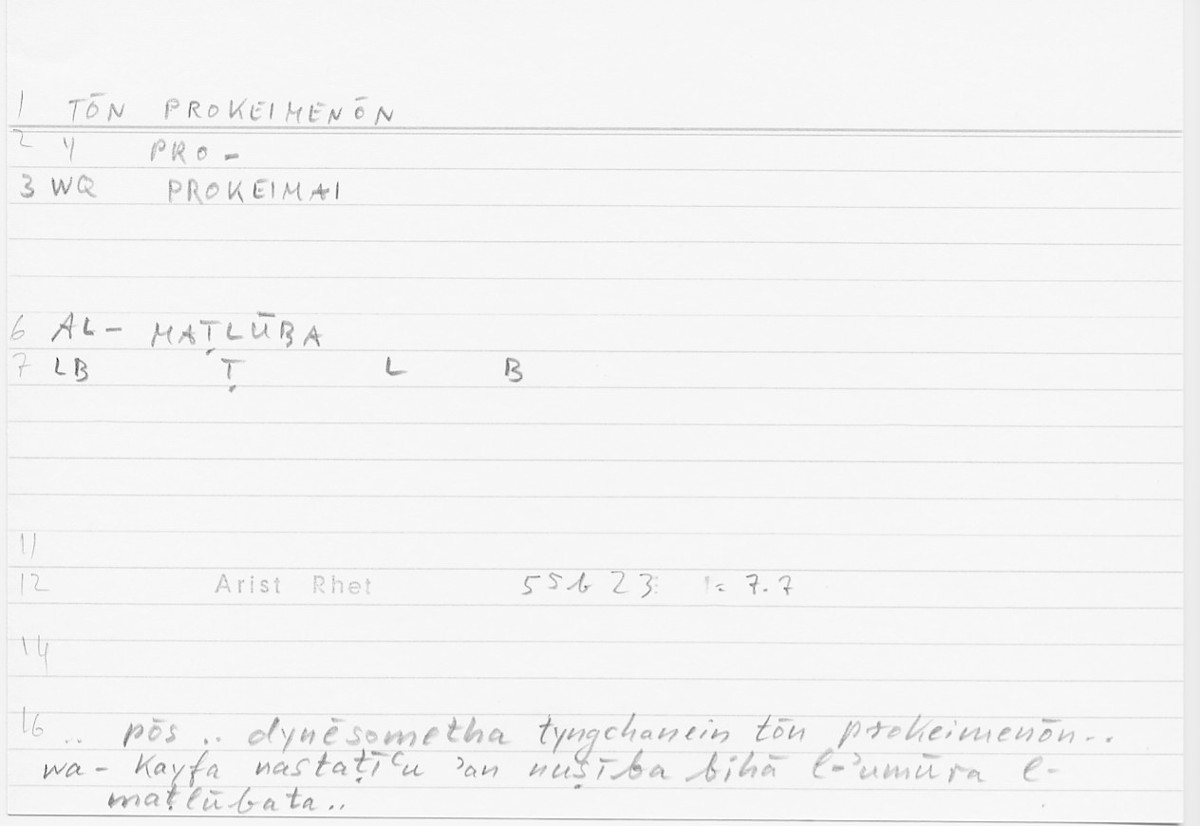 1 TŌN PROKEIMENŌN
2 Y PRO-
3 WQ PROKEIMAI
6 AL- MAṬLŪBA
7 LB Ṭ L B
11
12 Arist Rhet 55b 23 = 7.7
14
16 .. pōs .. dynēsometha tyngchanein tōn prokeimenōn..
wa- kayfa nastaṭīʿu ʾan nuṣība bihā l-ʾumūra l-
maṭlūbata..